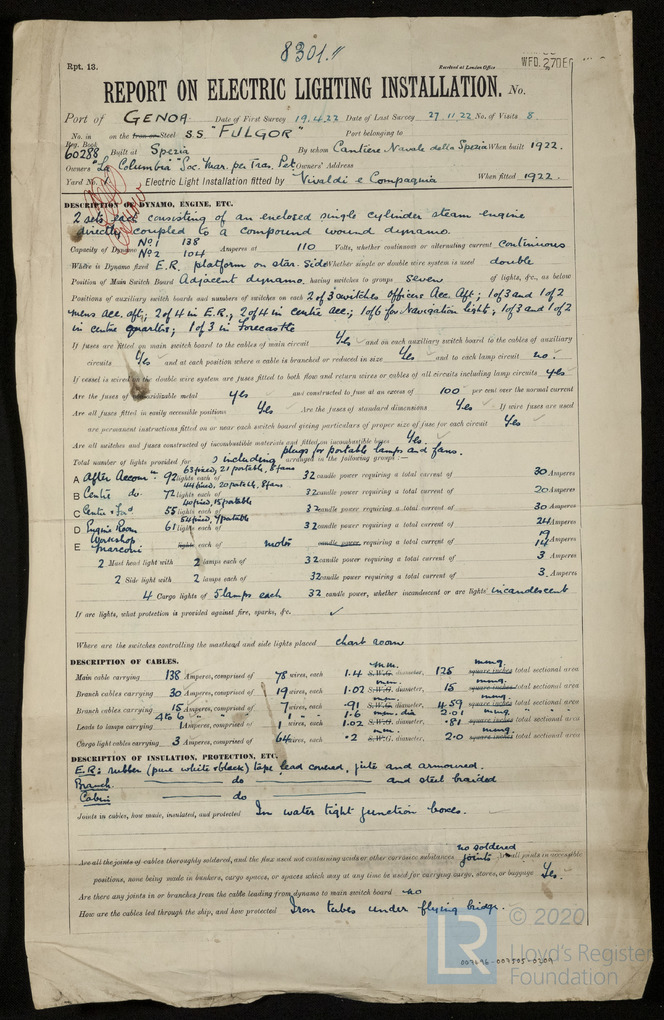 8301.
Rpt. 13.
Received at London Office
WED. 27 DEC
REPORT ON ELECTRIC LIGHTING INSTALLATION. No.
Port of GENOA Date of First Survey 19.4.22 Date of Last Survey 27.11.22 No. of Visits 8.
No. in Reg. Book on the Iron or Steel S.S. "FULGOR" Port belonging to
60288 Built at Spezia By whom Cantiere Navale della Spezia When built 1922.
Owners "La Columbia" Soc. Mar. per Tras. Pet Owners' Address
Yard No. Electric Light Installation fitted by Vivaldi e Compagnia When fitted 1922.
DESCRIPTION OF DYNAMO, ENGINE, ETC.
2 sets each consisting of an enclosed single cylinder steam engine
directly coupled to a compound wound dynamo.
Capacity of Dynamo No 1 138 Amperes at 110 Volts, whether continuous or alternating current continuous
No 2 104
Where is Dynamo fixed E.R. platform on star. side Whether single or double wire system is used double
Position of Main Switch Board Adjacent dynamo having switches to groups seven of lights, &c., as below
Positions of auxiliary switch boards and numbers of switches on each 2 of 3 switches officers Acc. Aft; 1 of 3 and 1 of 2
mens acc. aft; 2 of 4 in E.R.; 2 of 4 in centre acc; 1 of 6 for Navigation light; 1 of 3 and 1 of 2
in centre quarters; 1 of 3 in Forecastle
If fuses are fitted on main switch board to the cables of main circuit Yes and on each auxiliary switch board to the cables of auxiliary
circuits Yes and at each position where a cable is branched or reduced in size Yes and to each lamp circuit no.
If vessel is wired on the double wire system are fuses fitted to both flow and return wires or cables of all circuits including lamp circuits yes
Are the fuses of oxidizable metal yes and constructed to fuse at an excess of 100 per cent over the normal current
Are all fuses fitted in easily accessible positions Yes Are the fuses of standard dimensions Yes If wire fuses are used
are permanent instructions fitted on or near each switch board giving particulars of proper size of fuse for each circuit Yes
Are all switches and fuses constructed of incombustible materials and fitted on incombustible bases Yes.
Total number of lights provided for including plugs for portable lamps and fans. arranged in the following groups :—
A After Accom. 92 lights each of 63 fixed, 21 portable, 8 fans 32 candle power requiring a total current of 30 Amperes
B Centre do. 72 lights each of 44 fixed, 20 portable, 8 fans 32 candle power requiring a total current of 20 Amperes
C Centre & Fwd 55 lights each of 40 fixed, 15 portable 32 candle power requiring a total current of 30 Amperes
D Engine Room 61 lights each of 54 fixed, 7 portable 32 candle power requiring a total current of 24 Amperes
E Workshop Marconi lights each of motor candle power requiring a total current of 19 14 Amperes
2 Mast head light with 2 lamps each of 32 candle power requiring a total current of 3 Amperes
2 Side light with 2 lamps each of 32 candle power requiring a total current of 3 Amperes
4 Cargo lights of 5 lamps each 32 candle power, whether incandescent or arc lights incandescent
If arc lights, what protection is provided against fire, sparks, &c.
Where are the switches controlling the masthead and side lights placed chart room
DESCRIPTION OF CABLES.
Main cable carrying 138 Amperes, comprised of 78 wires, each 1.4 m.m. S.W.G. diameter, 125 mmq. square inches total sectional area
Branch cables carrying 30 Amperes, comprised of 19 wires, each 1.02 m.m. S.W.G. diameter, 15 mmq. square inches total sectional area
Branch cables carrying 15 Amperes, comprised of 7 wires, each .91 m.m. S.W.G. diameter, 4.59 mmq. square inches total sectional area
4 to 6 " " " 1 " " 1.6 m.m. dia 2.01 mmq. " "
Leads to lamps carrying 1 Amperes, comprised of 1 wires, each 1.02 S.W.G. diameter, .81 square inches total sectional area
Cargo light cables carrying 3 Amperes, comprised of 64 wires, each .2 m.m. S.W.G. diameter, 2.0 mmq. square inches total sectional area
DESCRIPTION OF INSULATION, PROTECTION, ETC.
E.R: rubber (pure white & black) tape, lead covered, jute and armoured.
Branch. do and steel braided
Cabin do
Joints in cables, how made, insulated, and protected In water tight junction boxes.
Are all the joints of cables thoroughly soldered, and the flux used not containing acids or other corrosive substances no soldered joints Are all joints in accessible
positions, none being made in bunkers, cargo spaces, or spaces which may at any time be used for carrying cargo, stores, or baggage Yes.
Are there any joints in or branches from the cable leading from dynamo to main switch board no
How are the cables led through the ship, and how protected Iron tubes under flying bridge.
© 2020
LR Lloyd's Register
Foundation
007696-007505-0209